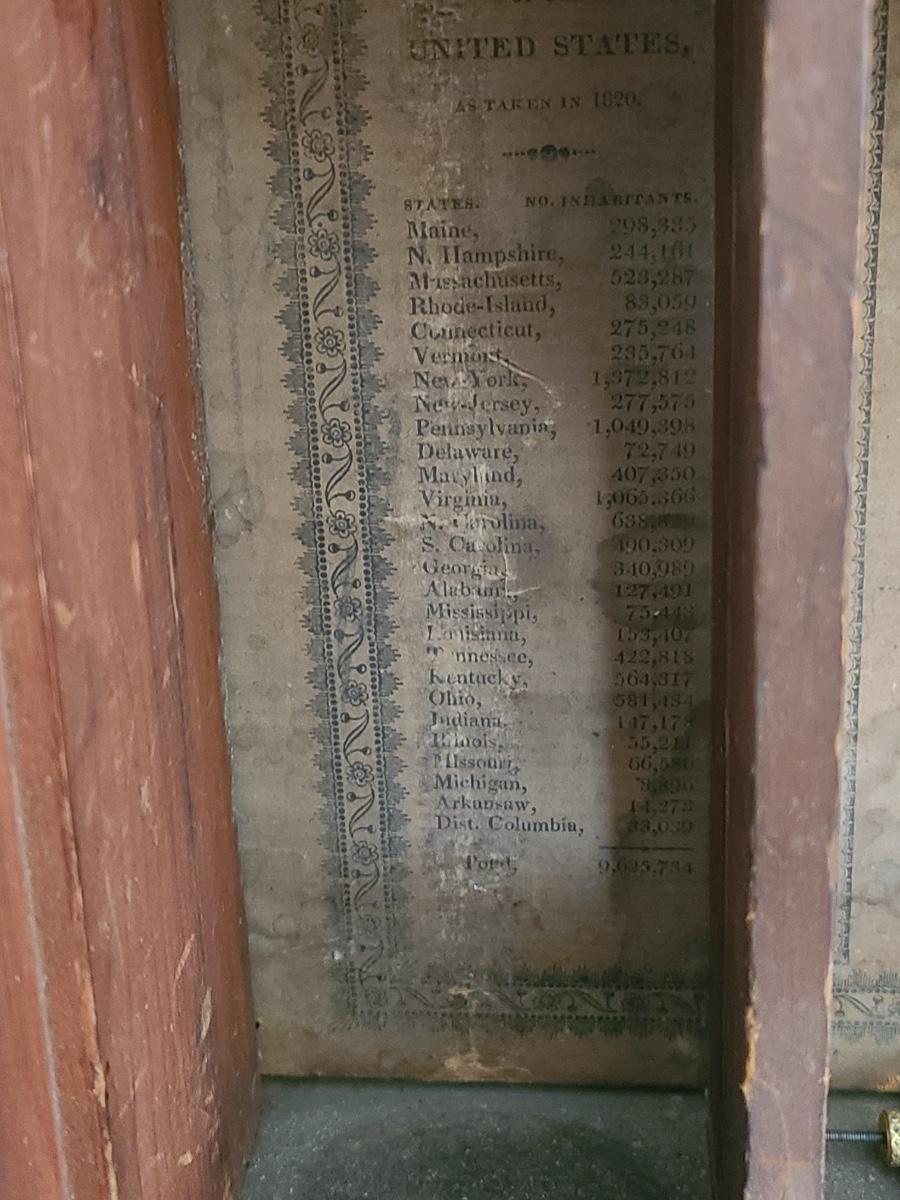 UNITED STATES,
AS TAKEN IN 1820.
STATES. NO. INHABITANTS.
Maine, 298,335
N. Hampshire, 244,161
Massachusetts, 523,287
Rhode-Island, 83,059
Connecticut, 275,248
Vermont, 235,764
New-York, 1,372,812
New-Jersey, 277,575
Pennsylvania, 1,049,398
Delaware, 72,749
Maryland, 407,350
Virginia, 1,065,366
N. Carolina,
S. Carolina, 490,309
Georgia, 340,989
Alabama, 127,491
Mississippi, 75,448
Louisiana, 153,407
Tennessee, 422,818
Kentucky, 564,317
Ohio, 581,434
Indiana, 147,178
Illinois, 55,211
Missouri, 66,586
Michigan, 8,896
Arkansaw, 14,273
Dist. Columbia, 33,039
Total, 9,625,734